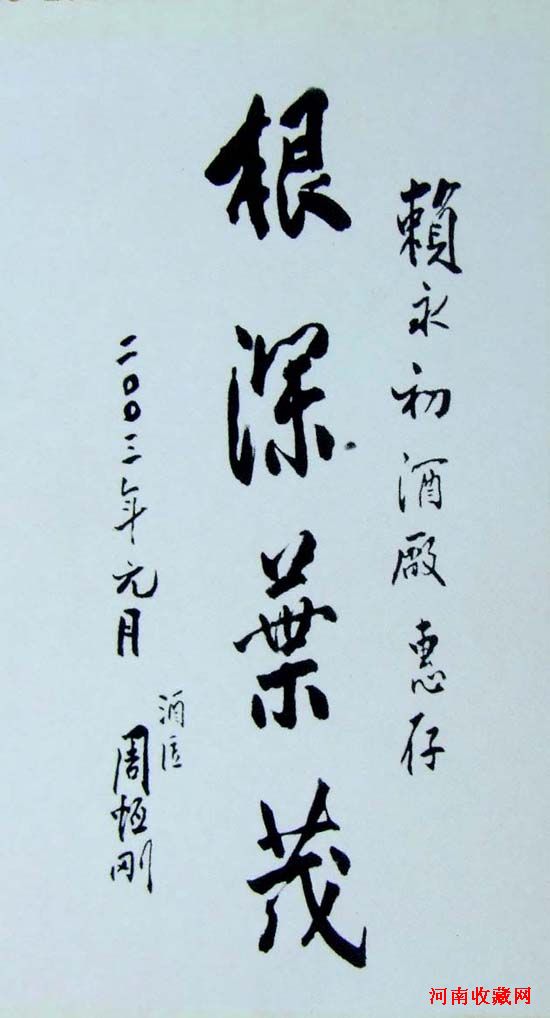 賴永初酒廠惠存
根深葉茂
二〇〇三年元月
酒匠
周恒刚
河南收藏网